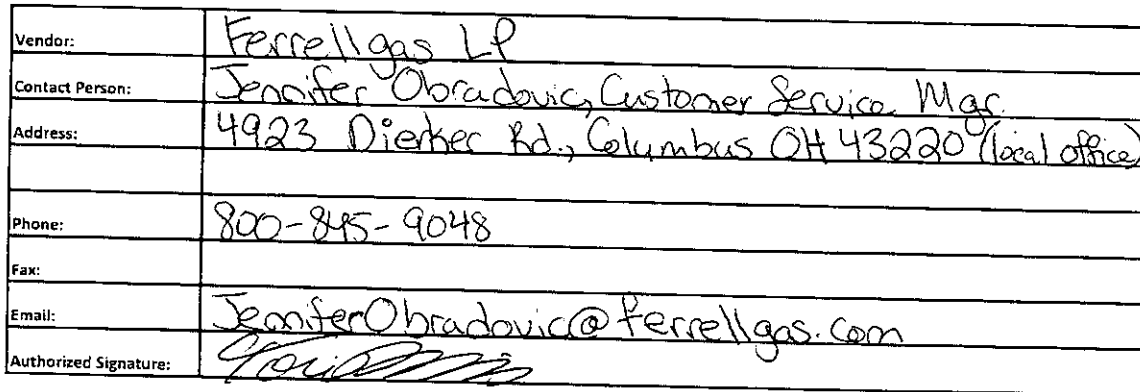 Vendor: Ferrellgas LP
Contact Person: Jennifer Obradovic, Customer Service Mgr.
Address: 4923 Dierker Rd., Columbus OH 43220 (local office)
Phone: 800-845-9048
Fax:
Email: JenniferObradovic@ferrellgas.com
Authorized Signature: